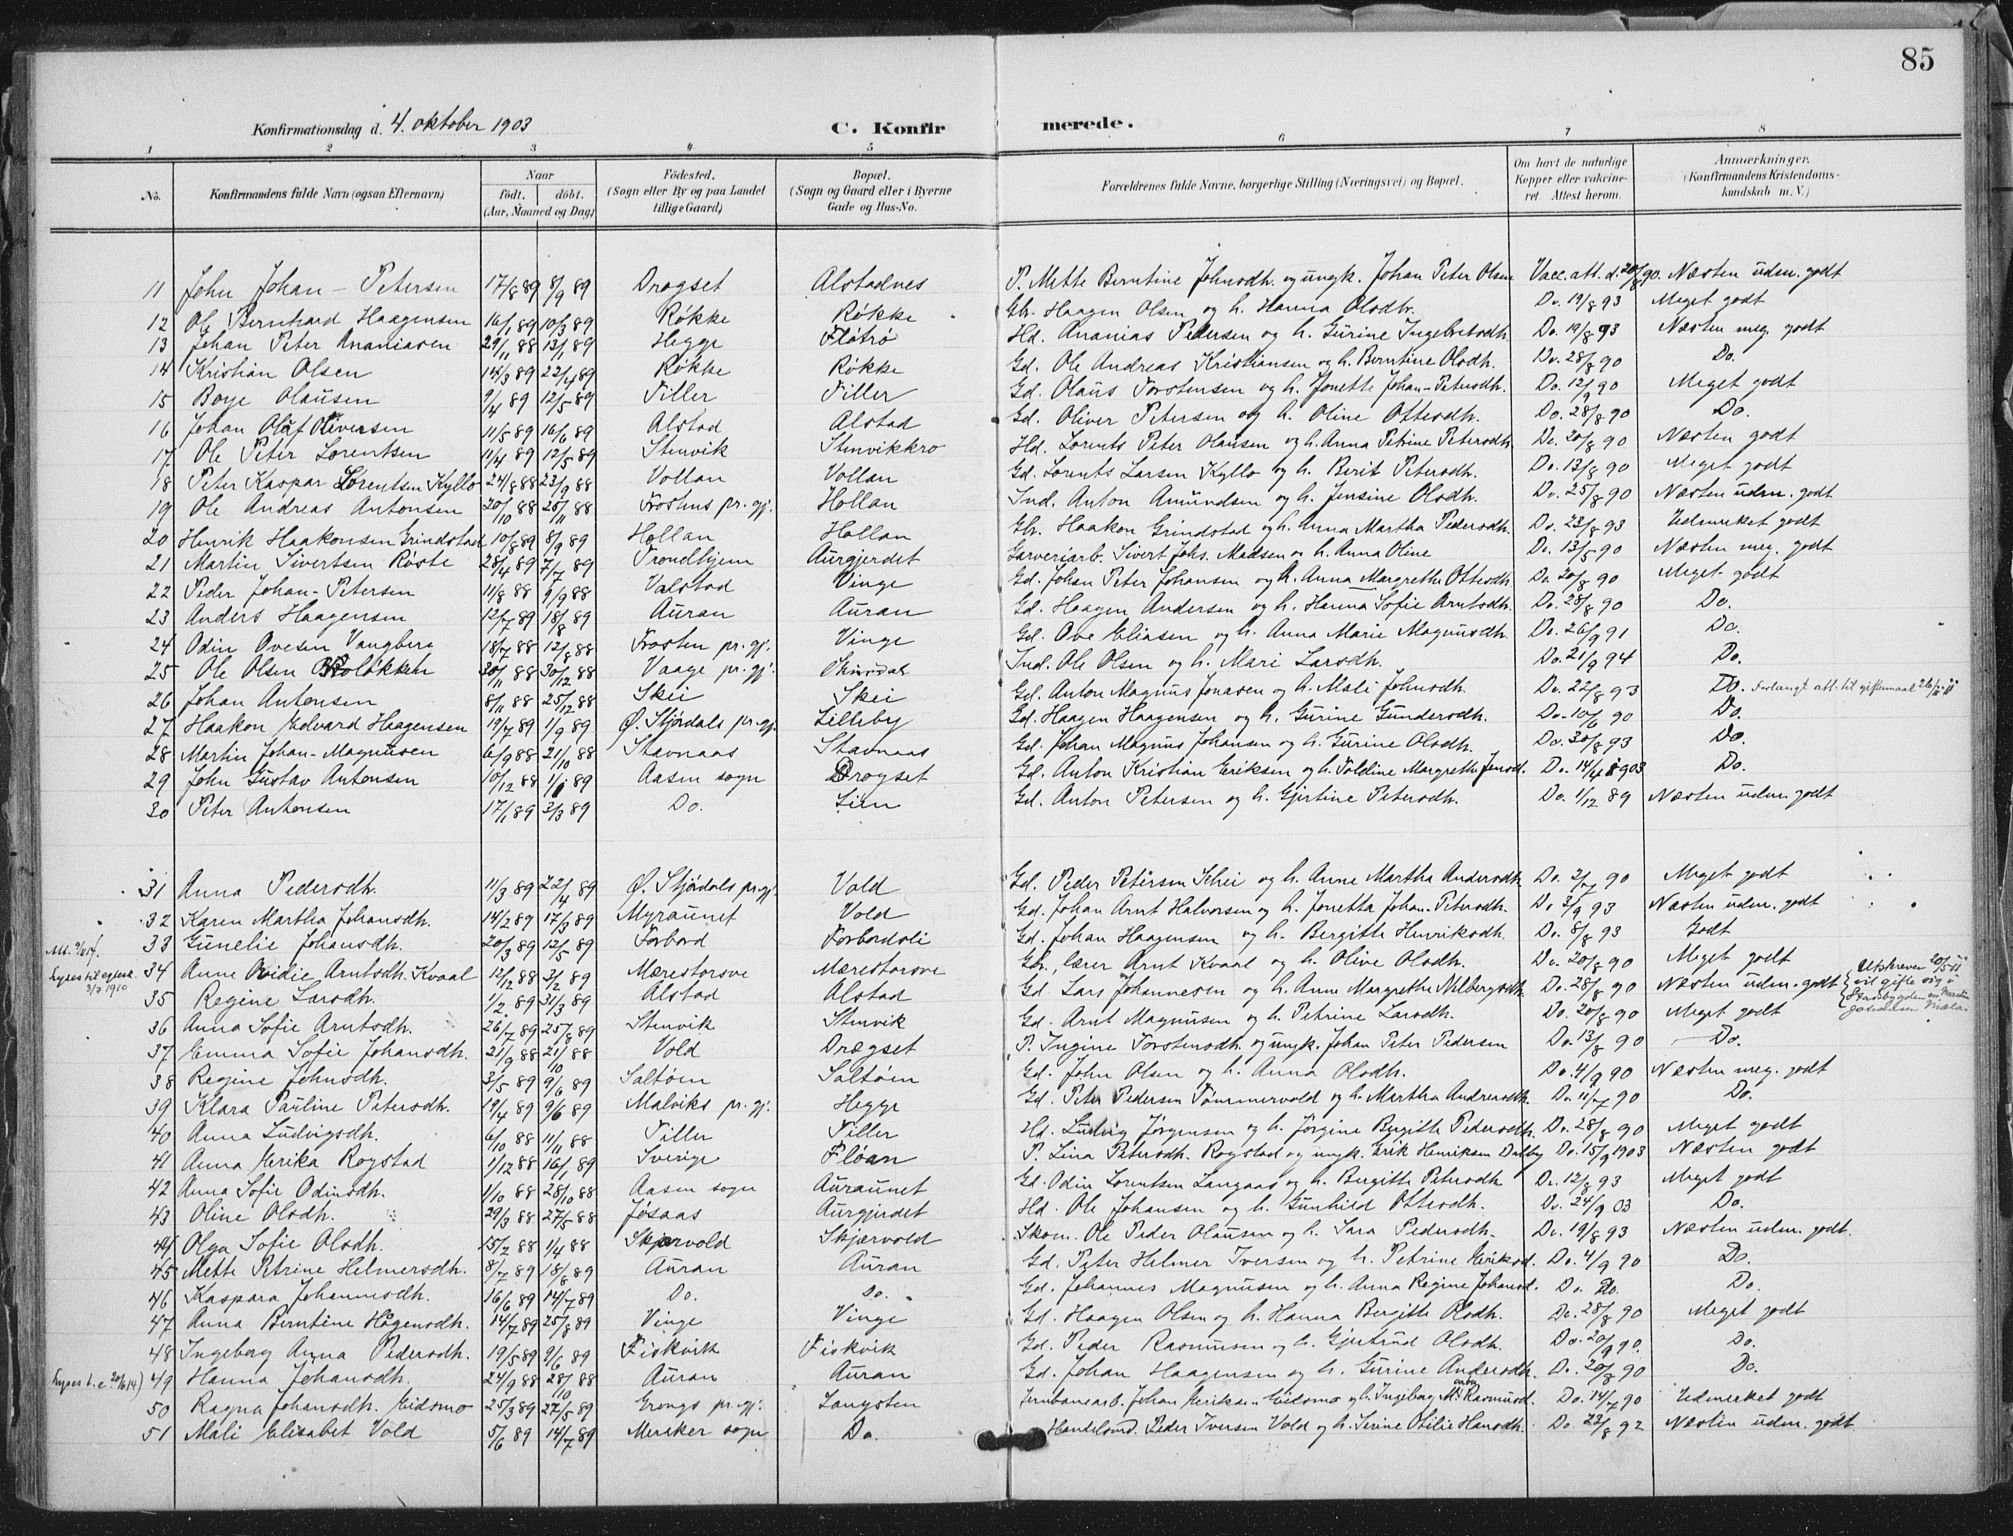 85
Konfirmationsdag d. 4. oktober 1903 C. Konfirmerede.
1 2 3 4 5 6 7 8
No. Konfirmandens fulde Navn (ogsaa Efternavn) Naar født. døbt. (Aar, Maaned og Dag) Fødested. (Sogn eller By og paa Landet tillige Gaard) Bopæl. (Sogn og Gaard eller i Byerne Gade og Hus-No. Forældrenes fulde Navne, borgerlige Stilling (Næringsvei) og Bopæl. Om havt de naturlige Kopper eller vakcineret. Attest herom. Anmærkninger. (Konfirmandens Kristendomskundskab m. V.)
11 John Johan-Petersen 17/8 89 8/9 89 Drogset Alstadnes P. Mette Berntine Johnsdh. og ungk. Johan Peter Olsen Vacc. att. d. 20/8 90. Næsten udm. godt
12 Ole Bernhard Haagensen 16/1 89 10/3 89 Røkke Røkke Gbr. Haagen Olsen og h. Hanna Olsdh. Do. 19/8 93 Meget godt
13 Johan Peter Ananiasen 29/11 88 13/1 89 Hegge Fløtrø Hd. Ananias Pedersen og h. Gurine Ingebretsdh. Do. 19/8 93 Næsten meg. godt
14 Kristian Olsen 14/3 89 22/4 89 Røkke Røkke Gd. Ole Andreas Kristiansen og h. Berntine Olsdh. Do. 28/8 90 Do.
15 Boye Olausen 9/4 89 12/5 89 Tiller Tiller Gd. Olaus Torstensen og h. Jonette Johan-Petersdh. Do. 12/9 90 Meget godt
16 Johan Olaf Oliversen 11/5 89 16/6 89 Alstad Alstad Gd. Oliver Petersen og h. Oline Ottersdh. Do. 28/8 90 Do.
17 Ole Peter Lorentsen 11/4 89 12/5 89 Stenvik Stenvikkro Hd. Lorents Peter Olausen og h. Anna Petrine Petersdh. Do. 20/8 90 Næsten godt
18 Peter Kaspar Lorentsen Kyllo 24/8 88 23/9 88 Vollan Vollan Gd. Lorents Larsen Kyllo og h. Berit Petersdh. Do. 13/8 90 Meget godt
19 Ole Andreas Antonsen 20/10 88 25/11 88 Frostens pr. gj. Hollan Ind. Anton Amundsen og h. Jensine Olsdh. Do. 25/8 90 Næsten udm. godt
20 Henrik Haakonsen Grindstad 10/8 89 8/9 89 Hollan Hollan Gbr. Haakon Grindstad og h. Anna Martha Pedersdh. Do. 23/8 93 Udmerket godt
21 Martin Sivertsen Røste 28/4 89 7/7 89 Trondhjem Aurgjerdet Garveriarb. Sivert Johs. Madsen og h. Anna Oline Do. 13/5 90 Næsten meg. godt
22 Peder Johan-Petersen 11/8 88 9/9 88 Valstad Vinge Gd. Johan Peter Johansen og h. Anna Margrethe Ottersdh. Do 20/8 90 Meget godt
23 Anders Haagensen 12/7 89 18/8 89 Auran Auran Gd. Haagen Andersen og h. Hanna Sofie Arntsdh. Do. 28/8 90 Do.
24 Odin Ovesen Vangberg 18/7 88 12/8 88 Frosten pr. gj. Vinge Gd. Ove Eliasen og h. Anna Marie Magnusdh. Do. 26/9 91 Do.
25 Ole Olsen 30/11 88 30/12 88 Vaage pr. gj. Ind. Ole Olsen og h. Mari Larsdh. Do. 21/9 94 Do.
26 Johan Antonsen 8/11 88 25/12 88 Skei Skei Gd. Anton Magnus Jonasen og h. Mali Johnsdh. Do. 22/8 93 Do. Forlangt att. til giftermaal
27 Haakon Edvard Haagensen 19/7 89 1/9 89 Ø. Stjørdals pr. gj. Lilleby Gd. Haagen Haagensen og h. Gurine Gundersdh. Do. 10/6 90 Do.
28 Martin Johan-Magnusen 6/9 88 21/10 88 Stavnaas Stavnaas Gd. Johan Magnus Johansen og h. Gurine Olsdh. Do. 30/8 93 Do.
29 John Gustav Antonsen 10/12 88 1/1 89 Aasen sogn Drogset Gd. Anton Kristian Eriksen og h. Toldine Margrethe Jensd. Do. 14/4 1903 Do.
30 Peter Antonsen 17/1 89 3/3 89 Do. Lien Gd. Anton Petersen og h. Gjertine Petersdh. Do. 1/12 89 Næsten udm. godt
31 Anna Pedersdh. 11/3 89 22/4 89 Ø. Stjørdals pr. gj. Vold Gd. Peder Petersen Klei og h. Anne Martha Andersdh. Do. 2/7 90 Meget godt
32 Karen Martha Johansdh. 14/2 89 17/3 89 Myraunet Vold Gd. Johan Arnt Halvorsen og h. Jonetta Johan-Petersdh. Do 2/9 93 Næsten udm. godt
33 Gunelie Johansdh. 20/3 89 12/5 89 Forbord Forbordsli Gd. Johan Haagensen og h. Bergitte Henriksdh. Do. 8/8 93 Godt
Lyses til egtesk. 3/7 1910
34 Anne Ovidie Arntsdh. Kvaal 12/12 88 3/2 89 Mærestorsve Mærestorsve Gbr., lærer Arnt Kvaal og h. Olive Olsdh. Do. 20/8 90 Meget godt
35 Regine Larsdh. 1/2 89 31/3 89 Alstad Alstad Gd Lars Johannesen og h. Anne Margrethe Nilbergsdh. Do. 28/8 90 Næsten udm. godt Utskreven 20/5 11 vil gifte sig i Stadsbygden m. Martin
36 Anna Sofie Arntsdh. 26/7 89 25/8 89 Stenvik Stenvik Gd. Arnt Magnusen og h. Petrine Larsdh. Do. 20/8 90 Meget godt
37 Emma Sofie Johansdh. 21/9 88 21/10 88 Vold Drogset P. Ingine Torstensdh. og ungk. Johan Peter Pedersen Do. 13/8 90 Do.
38 Regine Johnsdh. 3/5 89 9/6 89 Saltøen Saltøen Gd. John Olsen og h. Anna Olsdh. Do. 4/9 90 Næsten meg. godt
39 Klara Pauline Petersdh. 19/4 89 9/6 89 Malviks pr. gj. Hegge Gd. Peter Pedersen Tømmervold og h. Martha Andersdh. Do. 11/7 90 Do.
40 Anna Ludvigsdh. 6/10 88 11/11 88 Tiller Tiller Hd. Ludvig Jørgensen og h. Jørgine Bergitte Pedersdh. Do. 28/8 90 Meget godt
41 Anna Marika Rogstad 1/12 88 16/1 89 Sverige Floan P. Lina Petersdh. Rogstad og ungk. Erik Henriksen Dalby Do. 15/9 1903 Næsten godt
42 Anna Sofie Odinsdh. 1/10 88 28/10 88 Aasen sogn Auraunet Gd. Odin Lorentsen Langaas og h. Bergitte Petersdh Do. 12/8 93 Meget godt
43 Oline Olsdh. 29/3 88 27/5 88 Jøsaas Aurgjerdet Hd. Ole Johansen og h. Gunhild Ottersdh. Do. 24/9 03 Do.
44 Olga Sofie Olsdh. 15/2 88 1/4 88 Skjervold Skjærvold Skom. Ole Peder Olausen og h. Sara Pedersdh. Do. 19/8 93 Næsten udm. godt
45 Mette Petrine Helmersdh. 8/7 89 18/8 89 Auran Auran Gd. Peter Helmer Iversen og h. Petrine Eriksd. Do. 4/9 90 Do.
46 Kaspara Johannesdh. 16/6 89 14/7 89 Do. Do. Gd. Johannes Magnusen og h. Anna Regine Johansd. Do. Do. Do.
47 Anna Berntine Hågensdh. 14/7 89 25/8 89 Vinge Vinge Gd. Haagen Olsen og h. Hanna Bergitte Olsdh. Do. 28/8 90 Meget godt
48 Ingeborg Anna Pedersdh. 19/5 89 9/6 89 Fiskvik Fiskvik Gd. Peder Rasmusen og h. Gjertrud Olsdh. Do. 20/9 90. Do.
Lyses t. e. 20/6 14)
49 Hanna Johansdh. 24/9 88 28/10 88 Auran Auran Gd. Johan Haagensen og h. Gurine Andersdh. Do. 20/8 90 Do.
50 Ragna Johansdh. Eidsmo 25/3 89 27/5 89 Grongs pr. gj. Langsten Jernbanearb. Johan Eriksen Eidsmo og h. Ingeborg M. Rasmusd. Do. 14/7 90 Udmerket godt
51 Mali Elisabet Vold 5/6 89 14/7 89 Meraker sogn Do. Handelsmd. Peder Iversen Vold og h. Sevine Otilie Hansdh. Do 23/8 92 Næsten udm. godt